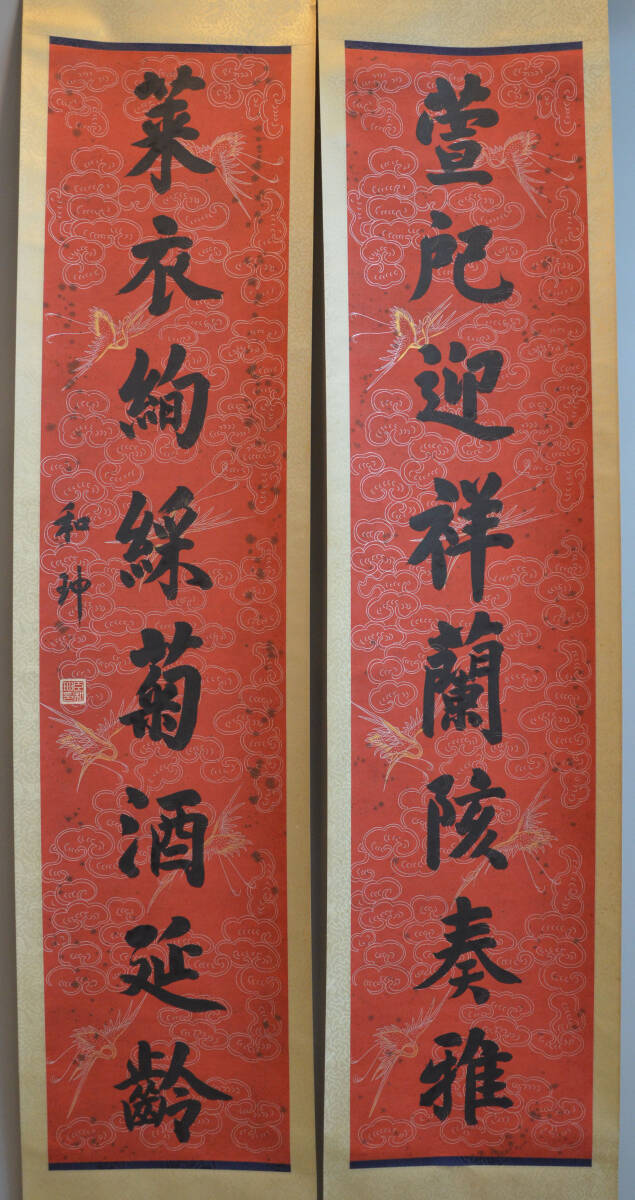 萱戺迎祥蘭陔奏雅
萊衣絢綵菊酒延齡
和珅